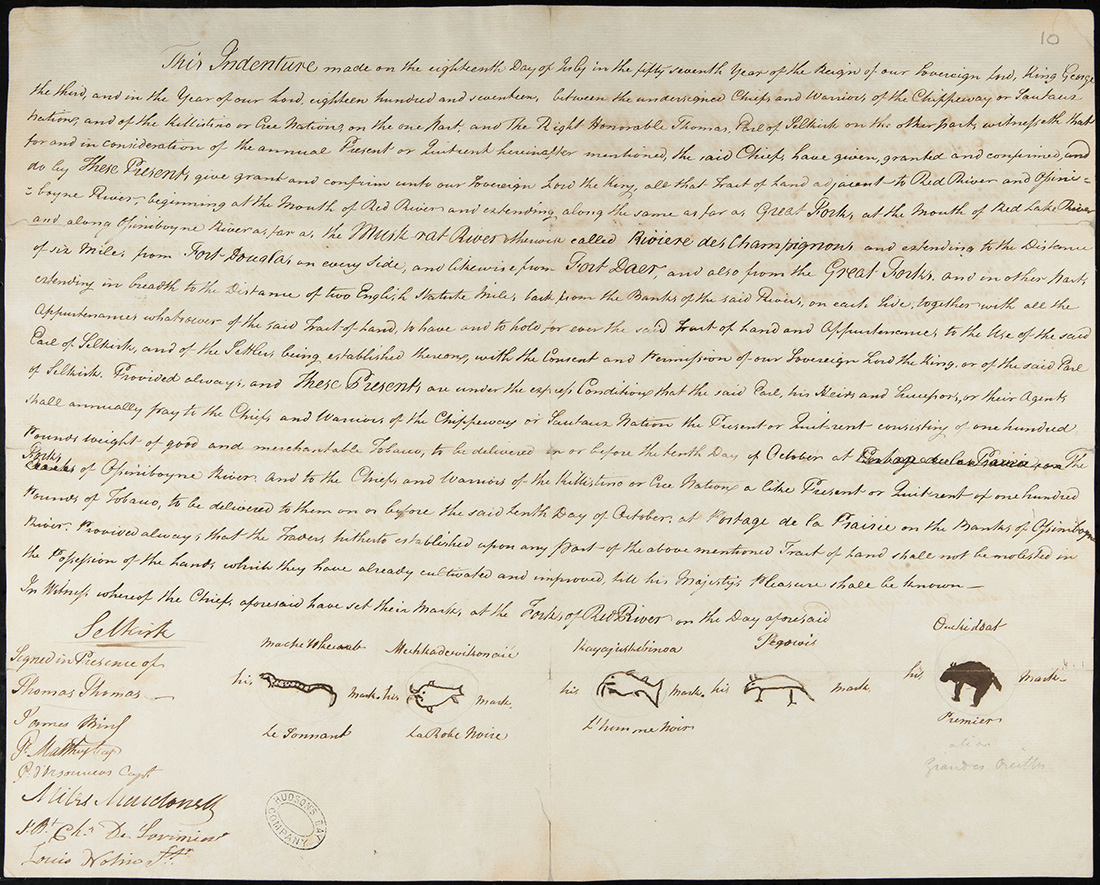 10
This Indenture made on the eighteenth Day of July in the fifty seventh Year of the Reign of our Sovereign Lord, King George
the third, and in the Year of our Lord, eighteen hundred and seventeen, between the undersigned Chiefs and Warriors of the Chippeway or Sautaux
Nation, and of the Killistino or Cree Nation, on the one Part, and The Right Honorable Thomas, Earl of Selkirk on the other part, witnesseth that
for and in consideration of the annual Present or Quitrent hereinafter mentioned, the said Chiefs have given, granted and confirmed, and
do by These Presents give grant and confirm unto our Sovereign Lord the King, all that Tract of Land adjacent to Red River and Ossini-
-boyne River, beginning at the Mouth of Red River and extending along the same as far as Great Forks, at the Mouth of Red Lake River
and along Ossiniboyne River as far as the Musk-rat River otherwise called Rivière des Champignons and extending to the Distance
of six Miles from Fort Douglas on every side, and likewise from Fort Daer and also from the Great Forks and in other Parts
extending in breadth to the Distance of two English Statute Miles back from the Banks of the said Rivers, on each side, together with all the
Appurtenances whatsoever of the said Tract of Land, to have and to hold, for ever the said Tract of Land and Appurtenances to the Use of the said
Earl of Selkirk, and of the Settlers being established thereon, with the Consent and Permission of our Sovereign Lord the King, or of the said Earl
of Selkirk. Provided always, and These Presents are under the express Condition that the said Earl, his Heirs and Successors, or their Agents
shall annually pay to the Chiefs and Warriors of the Chippeway or Sautaux Nation the Present or Quitrent consisting of one hundred
Pounds weight of good and merchantable Tobacco, to be delivered on or before the tenth Day of October at Portage de la Prairie The
Forks of Ossiniboyne River. And to the Chiefs and Warriors of the Killistino or Cree Nation a like Present or Quitrent of one hundred
Pounds of Tobacco, to be delivered to them on or before the said tenth Day of October, at Portage de la Prairie on the Banks of Ossiniboyne
River. Provided always, that the Traders hitherto established upon any Part of the above mentioned Tract of Land shall not be molested in
the Possession of the Lands which they have already cultivated and improved, till his Majesty's Pleasure shall be known—
In Witness whereof the Chiefs aforesaid have set their Marks, at the Forks of Red River on the Day aforesaid
Selkirk
Mache Wheseab Mechkadewikonaie Kayajieskibinoa Pegowis Ouckidoat
his mark his mark his mark his mark his mark
Le Sonnant La Robe Noire L'homme Noir Premier
alias
Grandes Oreilles
Signed in Presence of
Thomas Thomas
James Bird
F. Matthey Cap
P. D'Orsonnens Capt
Miles Macdonell
J. Bt. Chs. De Lorimier
Louis Nolin Itr.
HUDSON'S BAY COMPANY